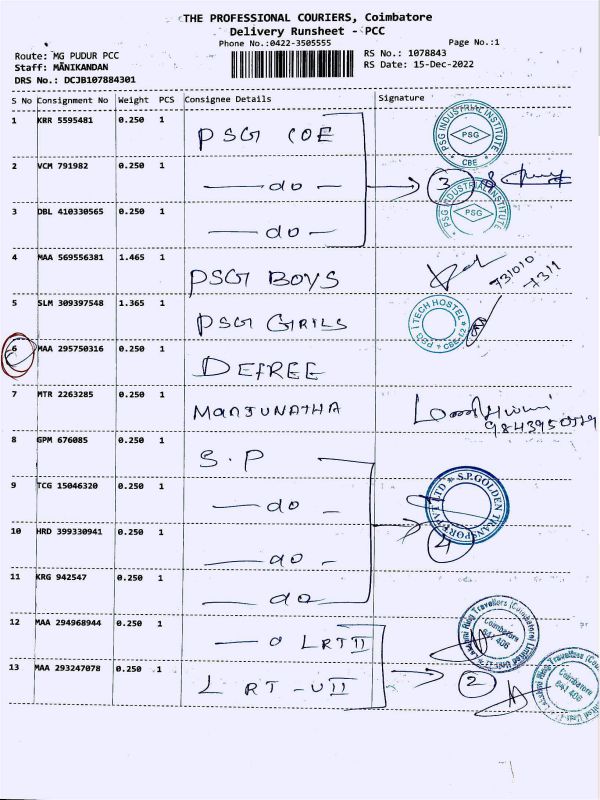 THE PROFESSIONAL COURIERS, Coimbatore
Delivery Runsheet - PCC
Phone No.:0422-3505555
Page No.:1
Route: MG PUDUR PCC
RS No.: 1078843
Staff: MANIKANDAN
RS Date: 15-Dec-2022
DRS No.: DCJB107884301
S No Consignment No Weight PCS Consignee Details Signature
1 KRR 5595481 0.250 1 PSG COE
PSG INDUSTRIAL INSTITUTE PSG CBE
2 VCM 791982 0.250 1 — do — 3
3 DBL 410330565 0.250 1 — do —
PSG INDUSTRIAL INSTITUTE PSG
4 MAA 569556381 1.465 1 PSG BOYS
731010
7311
5 SLM 309397548 1.365 1 PSG GIRLS
PSG iTECH HOSTEL CBE-62
6 MAA 295750316 0.250 1 DEFREE
7 MTR 2263285 0.250 1 MANJUNATHA
8 GPM 676085 0.250 1 S.P
9 TCG 15046320 0.250 1 — do —
S.P.GOLDEN TRANSPORT PVT LTD
10 HRD 399330941 0.250 1 — do — 4
11 KRG 942547 0.250 1 — do
12 MAA 294968944 0.250 1 — o LRT II
Lakshmi Ring Travellers (Coimbatore) Limited Unit-II Coimbatore 641 406
13 MAA 293247078 0.250 1 L RT -U II 2
Lakshmi Ring Travellers (Coimbatore) Limited Unit-II Coimbatore 641 406